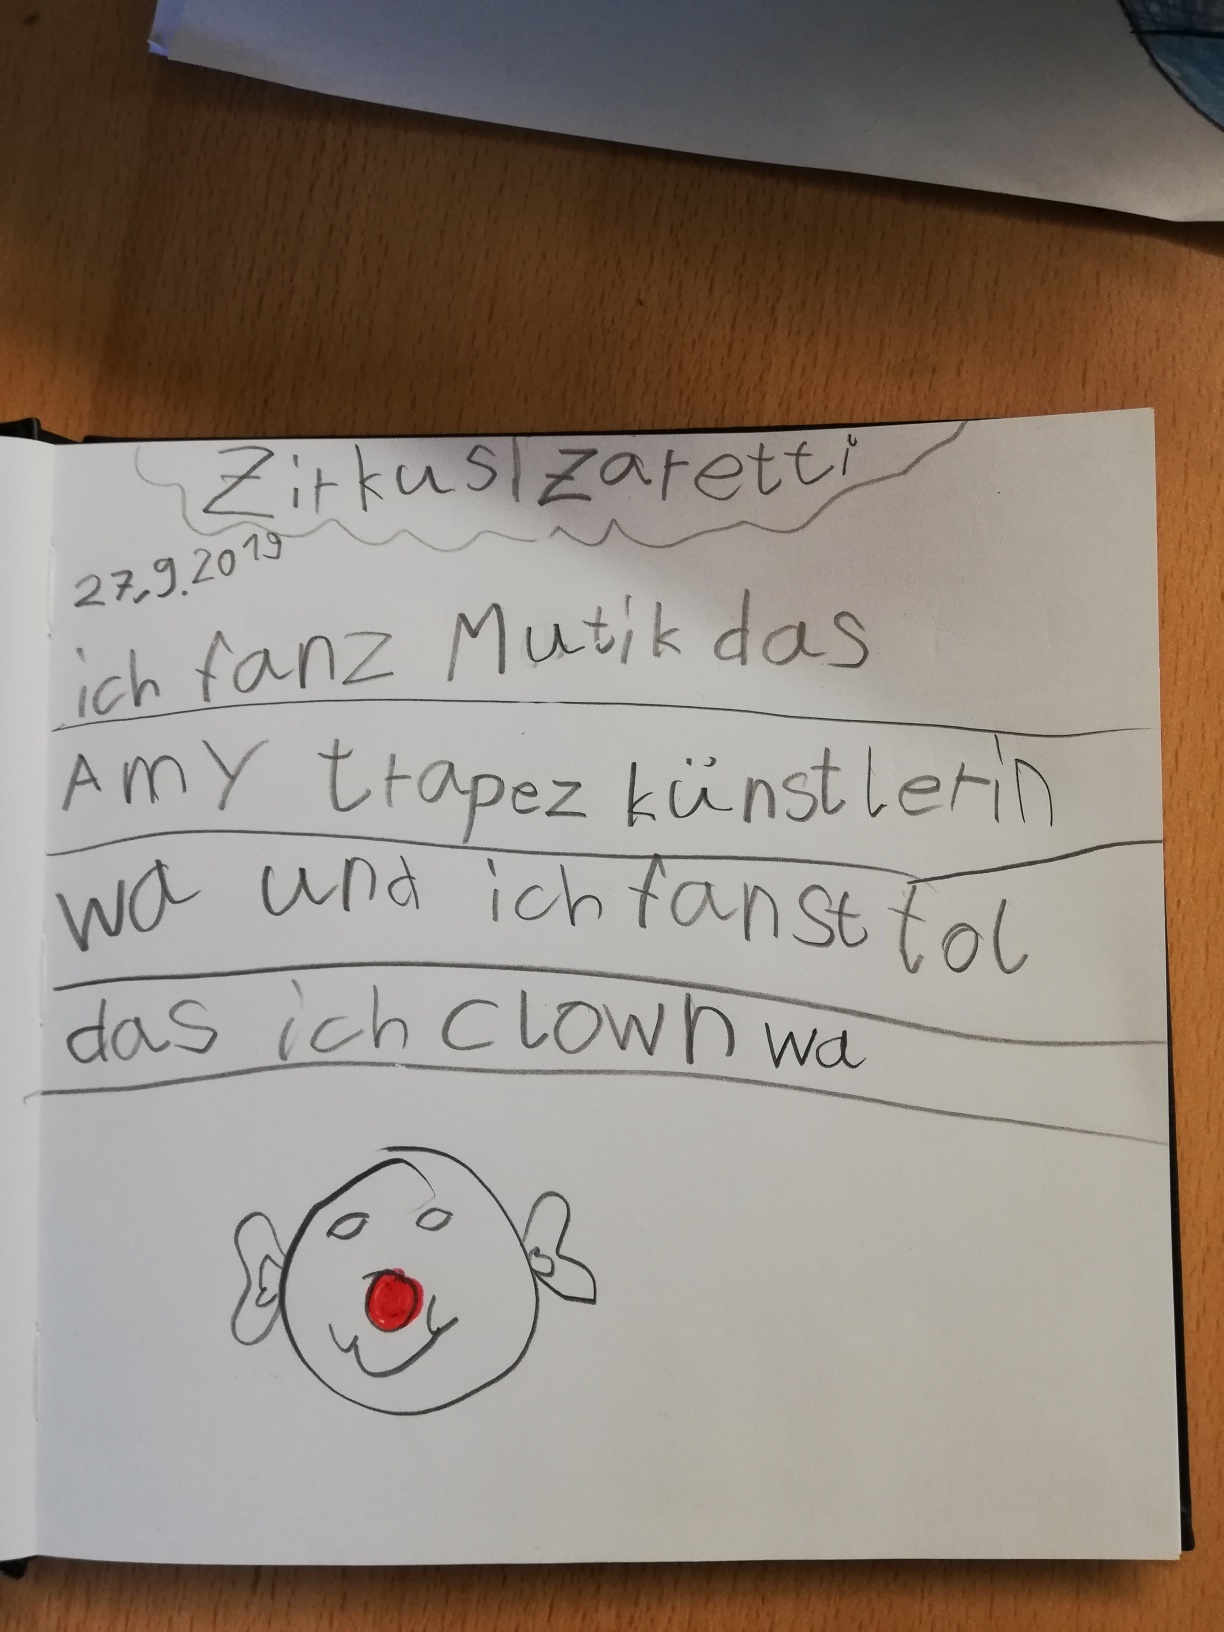 Zirkus|zaretti
27.9.2019
ich fanz Mutik das
AmY trapez künstlerin
wa und ich fanst tol
das ich Clown wa